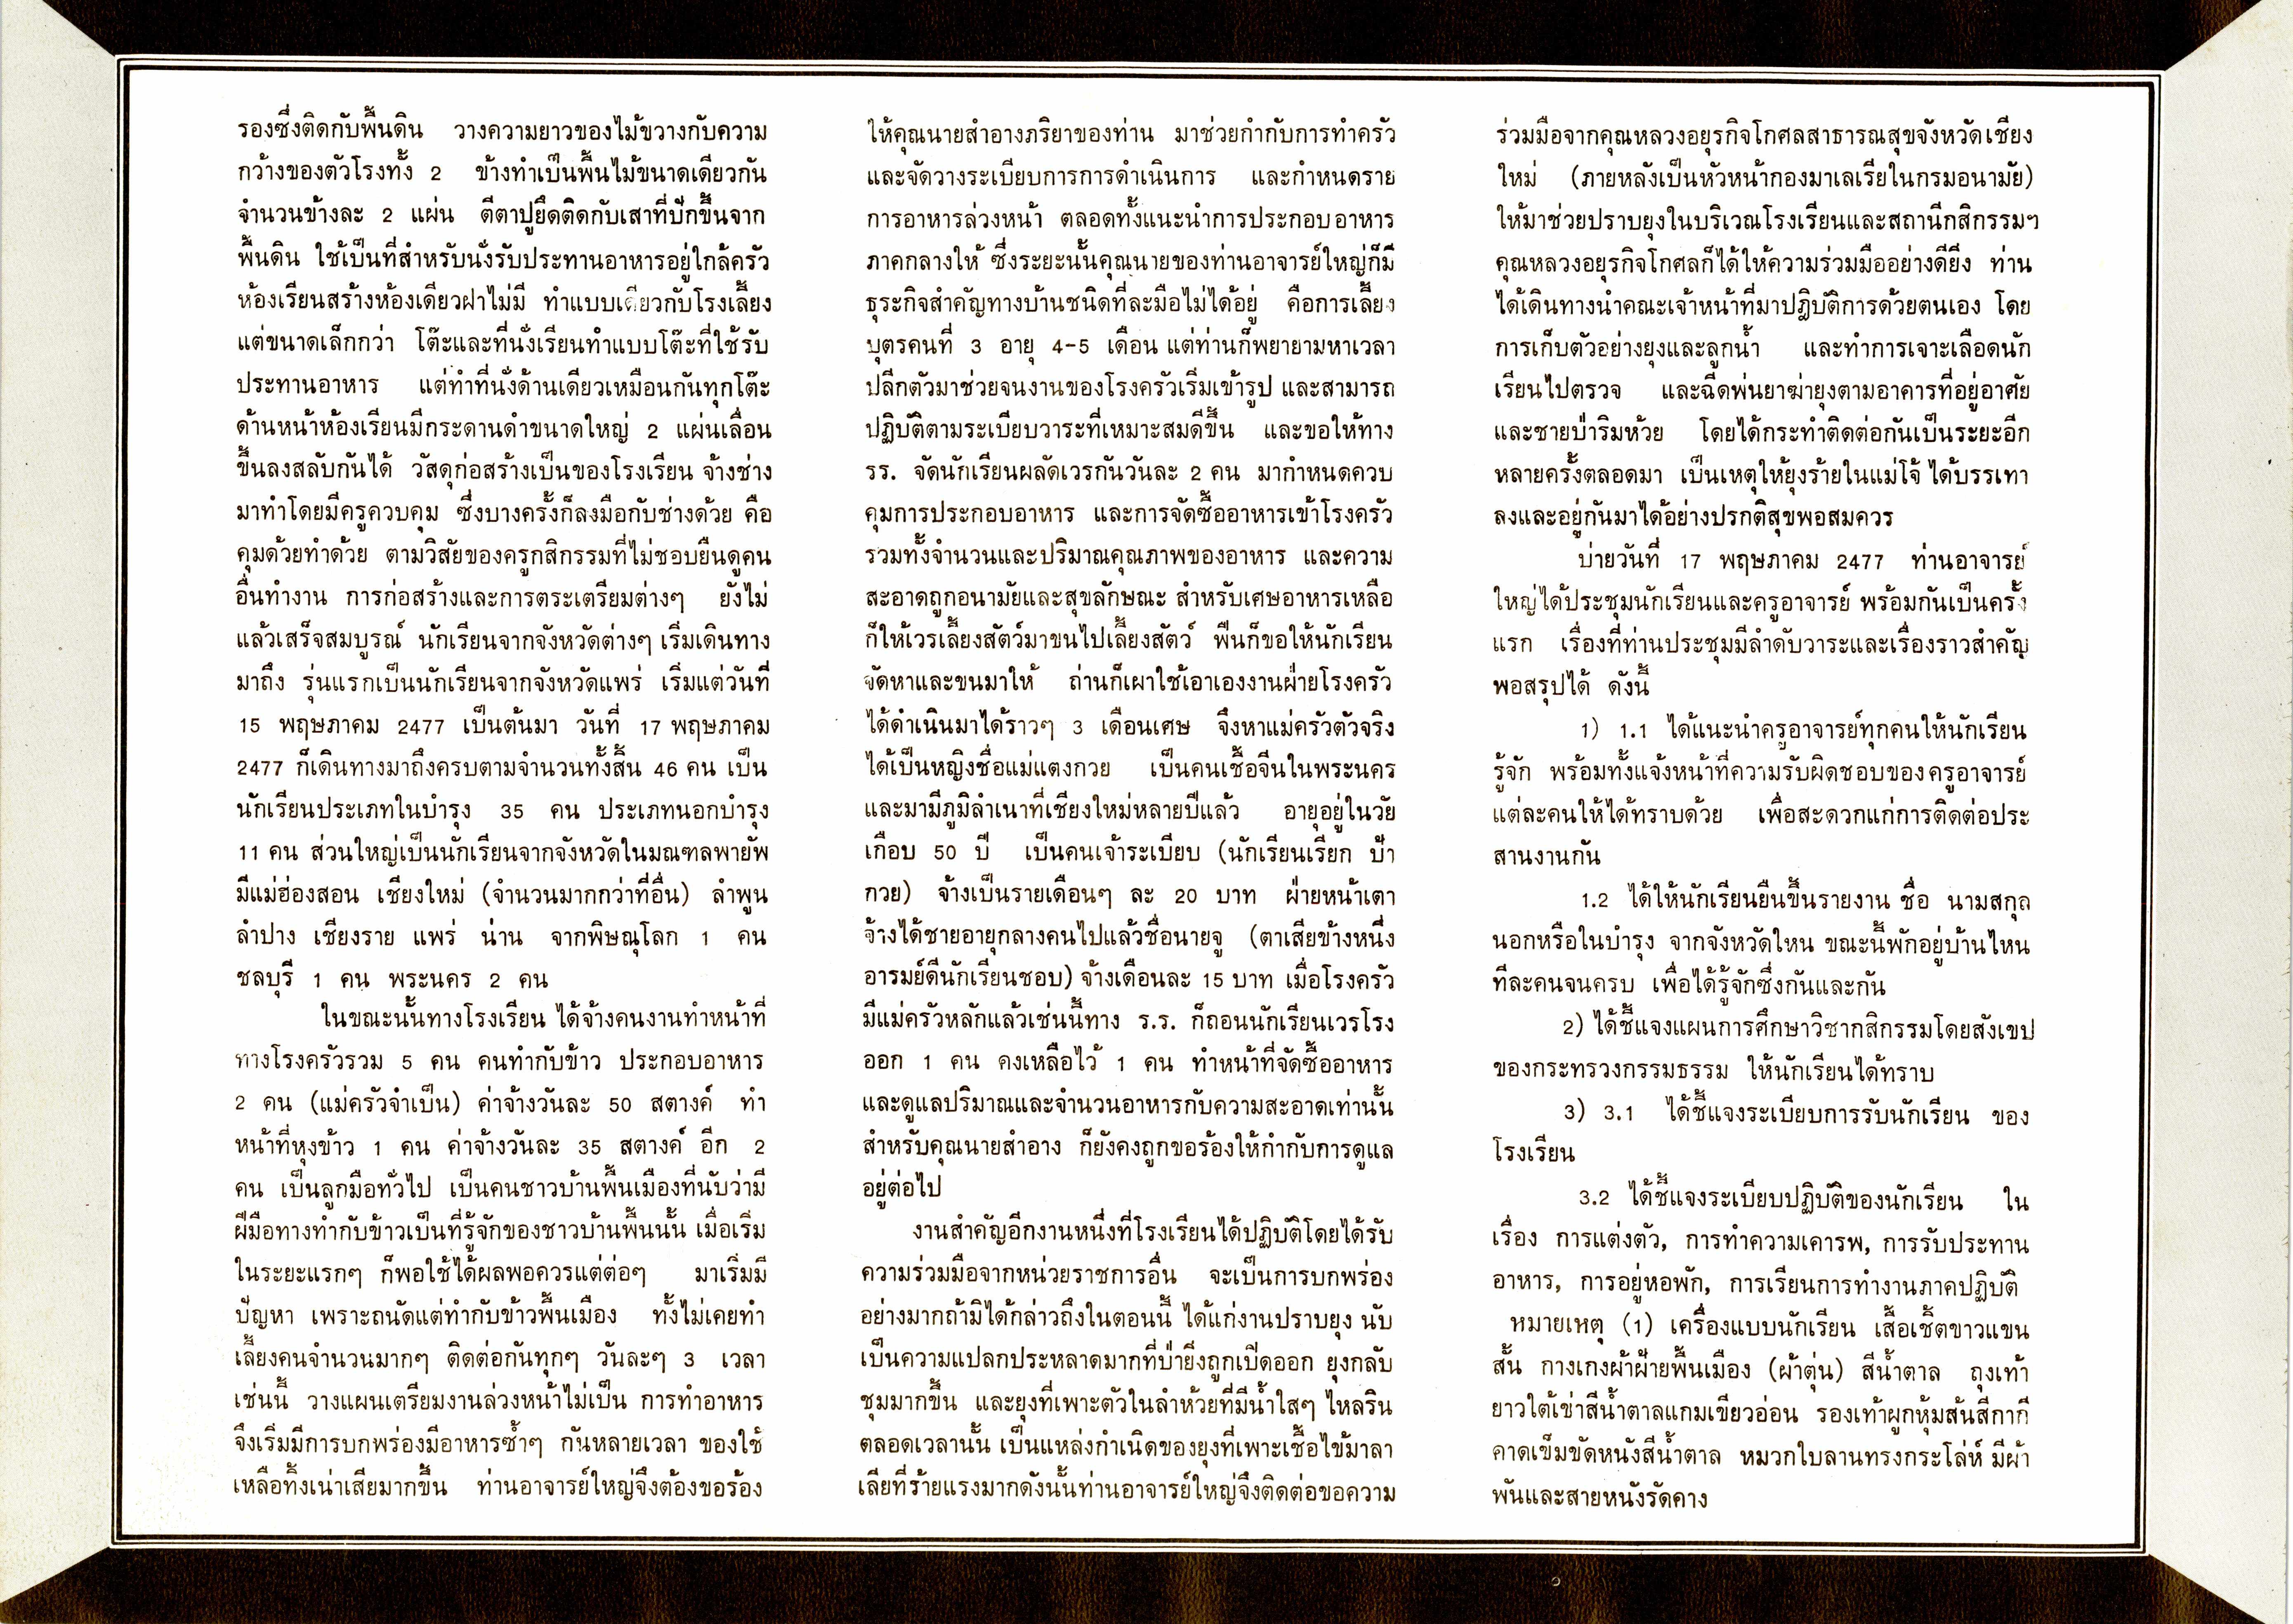 รองซึ่งติดกับพื้นดิน วางความยาวของไม้ขวางกับความ
กว้างของตัวโรงทั้ง 2 ข้างทำเป็นพื้นไม้ขนาดเดียวกัน
จำนวนข้างละ 2 แผ่น ตีตาปูยึดติดกับเสาที่ปักขึ้นจาก
พื้นดิน ใช้เป็นที่สำหรับนั่งรับประทานอาหารอยู่ใกล้ครัว
ห้องเรียนสร้างห้องเดียวฝาไม่มี ทำแบบเดียวกับโรงเลี้ยง
แต่ขนาดเล็กกว่า โต๊ะและที่นั่งเรียนทำแบบโต๊ะที่ใช้รับ
ประทานอาหาร แต่ทำที่นั่งด้านเดียวเหมือนกันทุกโต๊ะ
ด้านหน้าห้องเรียนมีกระดานดำขนาดใหญ่ 2 แผ่นเลื่อน
ขึ้นลงสลับกันได้ วัสดุก่อสร้างเป็นของโรงเรียน จ้างช่าง
มาทำโดยมีครูควบคุม ซึ่งบางครั้งก็ลงมือกับช่างด้วย คือ
คุมด้วยทำด้วย ตามวิสัยของครูกสิกรรมที่ไม่ชอบยืนดูคน
อื่นทำงาน การก่อสร้างและการตระเตรียมต่างๆ ยังไม่
แล้วเสร็จสมบูรณ์ นักเรียนจากจังหวัดต่างๆ เริ่มเดินทาง
มาถึง รุ่นแรกเป็นนักเรียนจากจังหวัดแพร่ เริ่มแต่วันที่
15 พฤษภาคม 2477 เป็นต้นมา วันที่ 17 พฤษภาคม
2477 ก็เดินทางมาถึงครบตามจำนวนทั้งสิ้น 46 คน เป็น
นักเรียนประเภทในบำรุง 35 คน ประเภทนอกบำรุง
11 คน ส่วนใหญ่เป็นนักเรียนจากจังหวัดในมณฑลพายัพ
มีแม่ฮ่องสอน เชียงใหม่ (จำนวนมากกว่าที่อื่น) ลำพูน
ลำปาง เชียงราย แพร่ น่าน จากพิษณุโลก 1 คน
ชลบุรี 1 คน พระนคร 2 คน
ในขณะนั้นทางโรงเรียน ได้จ้างคนงานทำหน้าที่
ทางโรงครัวรวม 5 คน คนทำกับข้าว ประกอบอาหาร
2 คน (แม่ครัวจำเป็น) ค่าจ้างวันละ 50 สตางค์ ทำ
หน้าที่หุงข้าว 1 คน ค่าจ้างวันละ 35 สตางค์ อีก 2
คน เป็นลูกมือทั่วไป เป็นคนชาวบ้านพื้นเมืองที่นับว่ามี
ฝีมือทางทำกับข้าวเป็นที่รู้จักของชาวบ้านพื้นนั้น เมื่อเริ่ม
ในระยะแรกๆ ก็พอใช้ได้ผลพอควรแต่ต่อๆ มาเริ่มมี
ปัญหา เพราะถนัดแต่ทำกับข้าวพื้นเมือง ทั้งไม่เคยทำ
เลี้ยงคนจำนวนมากๆ ติดต่อกันทุกๆ วันละๆ 3 เวลา
เช่นนี้ วางแผนเตรียมงานล่วงหน้าไม่เป็น การทำอาหาร
จึงเริ่มมีการบกพร่องมีอาหารซ้ำๆ กันหลายเวลา ของใช้
เหลือทิ้งเน่าเสียมากขึ้น ท่านอาจารย์ใหญ่จึงต้องขอร้อง
ให้คุณนายสำอางภริยาของท่าน มาช่วยกำกับการทำครัว
และจัดวางระเบียบการการดำเนินการ และกำหนดราย
การอาหารล่วงหน้า ตลอดทั้งแนะนำการประกอบอาหาร
ภาคกลางให้ ซึ่งระยะนั้นคุณนายของท่านอาจารย์ใหญ่ก็มี
ธุระกิจสำคัญทางบ้านชนิดที่ละมือไม่ได้อยู่ คือการเลี้ยง
บุตรคนที่ 3 อายุ 4-5 เดือน แต่ท่านก็พยายามหาเวลา
ปลีกตัวมาช่วยจนงานของโรงครัวเริ่มเข้ารูป และสามารถ
ปฏิบัติตามระเบียบวาระที่เหมาะสมดีขึ้น และขอให้ทาง
รร. จัดนักเรียนผลัดเวรกันวันละ 2 คน มากำหนดควบ
คุมการประกอบอาหาร และการจัดซื้ออาหารเข้าโรงครัว
รวมทั้งจำนวนและปริมาณคุณภาพของอาหาร และความ
สะอาดถูกอนามัยและสุขลักษณะ สำหรับเศษอาหารเหลือ
ก็ให้เวรเลี้ยงสัตว์มาขนไปเลี้ยงสัตว์ ฟืนก็ขอให้นักเรียน
จัดหาและขนมาให้ ถ่านก็เผาใช้เอาเองงานฝ่ายโรงครัว
ได้ดำเนินมาได้ราวๆ 3 เดือนเศษ จึงหาแม่ครัวตัวจริง
ได้เป็นหญิงชื่อแม่แตงกวย เป็นคนเชื้อจีนในพระนคร
และมามีภูมิลำเนาที่เชียงใหม่หลายปีแล้ว อายุอยู่ในวัย
เกือบ 50 ปี เป็นคนเจ้าระเบียบ (นักเรียนเรียก ป้า
กวย) จ้างเป็นรายเดือนๆ ละ 20 บาท ฝ่ายหน้าเตา
จ้างได้ชายอายุกลางคนไปแล้วชื่อนายจู (ตาเสียข้างหนึ่ง
อารมย์ดีนักเรียนชอบ) จ้างเดือนละ 15 บาท เมื่อโรงครัว
มีแม่ครัวหลักแล้วเช่นนี้ทาง ร.ร. ก็ถอนนักเรียนเวรโรง
ออก 1 คน คงเหลือไว้ 1 คน ทำหน้าที่จัดซื้ออาหาร
และดูแลปริมาณและจำนวนอาหารกับความสะอาดเท่านั้น
สำหรับคุณนายสำอาง ก็ยังคงถูกขอร้องให้กำกับการดูแล
อยู่ต่อไป
งานสำคัญอีกงานหนึ่งที่โรงเรียนได้ปฏิบัติโดยได้รับ
ความร่วมมือจากหน่วยราชการอื่น จะเป็นการบกพร่อง
อย่างมากถ้ามิได้กล่าวถึงในตอนนี้ ได้แก่งานปราบยุง นับ
เป็นความแปลกประหลาดมากที่ป่ายิ่งถูกเปิดออก ยุงกลับ
ชุมมากขึ้น และยุงที่เพาะตัวในลำห้วยที่มีน้ำใสๆ ไหลริน
ตลอดเวลานั้น เป็นแหล่งกำเนิดของยุงที่เพาะเชื้อไข้มาลา
เลียที่ร้ายแรงมากดังนั้นท่านอาจารย์ใหญ่จึงติดต่อขอความ
ร่วมมือจากคุณหลวงอยุรกิจโกศลสาธารณสุขจังหวัดเชียง
ใหม่ (ภายหลังเป็นหัวหน้ากองมาเลเรียในกรมอนามัย)
ให้มาช่วยปราบยุงในบริเวณโรงเรียนและสถานีกสิกรรมฯ
คุณหลวงอยุรกิจโกศลก็ได้ให้ความร่วมมืออย่างดียิ่ง ท่าน
ได้เดินทางนำคณะเจ้าหน้าที่มาปฏิบัติการด้วยตนเอง โดย
การเก็บตัวอย่างยุงและลูกน้ำ และทำการเจาะเลือดนัก
เรียนไปตรวจ และฉีดพ่นยาฆ่ายุงตามอาคารที่อยู่อาศัย
และชายป่าริมห้วย โดยได้กระทำติดต่อกันเป็นระยะอีก
หลายครั้งตลอดมา เป็นเหตุให้ยุงร้ายในแม่โจ้ ได้บรรเทา
ลงและอยู่กันมาได้อย่างปรกติสุขพอสมควร
บ่ายวันที่ 17 พฤษภาคม 2477 ท่านอาจารย์
ใหญ่ได้ประชุมนักเรียนและครูอาจารย์ พร้อมกันเป็นครั้ง
แรก เรื่องที่ท่านประชุมมีลำดับวาระและเรื่องราวสำคัญ
พอสรุปได้ ดังนี้
1) 1.1 ได้แนะนำครูอาจารย์ทุกคนให้นักเรียน
รู้จัก พร้อมทั้งแจ้งหน้าที่ความรับผิดชอบของครูอาจารย์
แต่ละคนให้ได้ทราบด้วย เพื่อสะดวกแก่การติดต่อประ
สานงานกัน
1.2 ได้ให้นักเรียนยืนขึ้นรายงาน ชื่อ นามสกุล
นอกหรือในบำรุง จากจังหวัดใหน ขณะนี้พักอยู่บ้านไหน
ทีละคนจนครบ เพื่อได้รู้จักซึ่งกันและกัน
2) ได้ชี้แจงแผนการศึกษาวิชากสิกรรมโดยสังเขป
ของกระทรวงกรรมธรรม ให้นักเรียนได้ทราบ
3) 3.1 ได้ชี้แจงระเบียบการรับนักเรียน ของ
โรงเรียน
3.2 ได้ชี้แจงระเบียบปฏิบัติของนักเรียน ใน
เรื่อง การแต่งตัว, การทำความเคารพ, การรับประทาน
อาหาร, การอยู่หอพัก, การเรียนการทำงานภาคปฏิบัติ
หมายเหตุ (1) เครื่องแบบนักเรียน เสื้อเชิ้ตขาวแขน
สั้น กางเกงผ้าฝ้ายพื้นเมือง (ผ้าตุ่น) สีน้ำตาล ถุงเท้า
ยาวใต้เข่าสีน้ำตาลแกมเขียวอ่อน รองเท้าผูกหุ้มส้นสีกากี
คาดเข็มขัดหนังสีน้ำตาล หมวกใบลานทรงกระโล่ห์ มีผ้า
พันและสายหนังรัดคาง